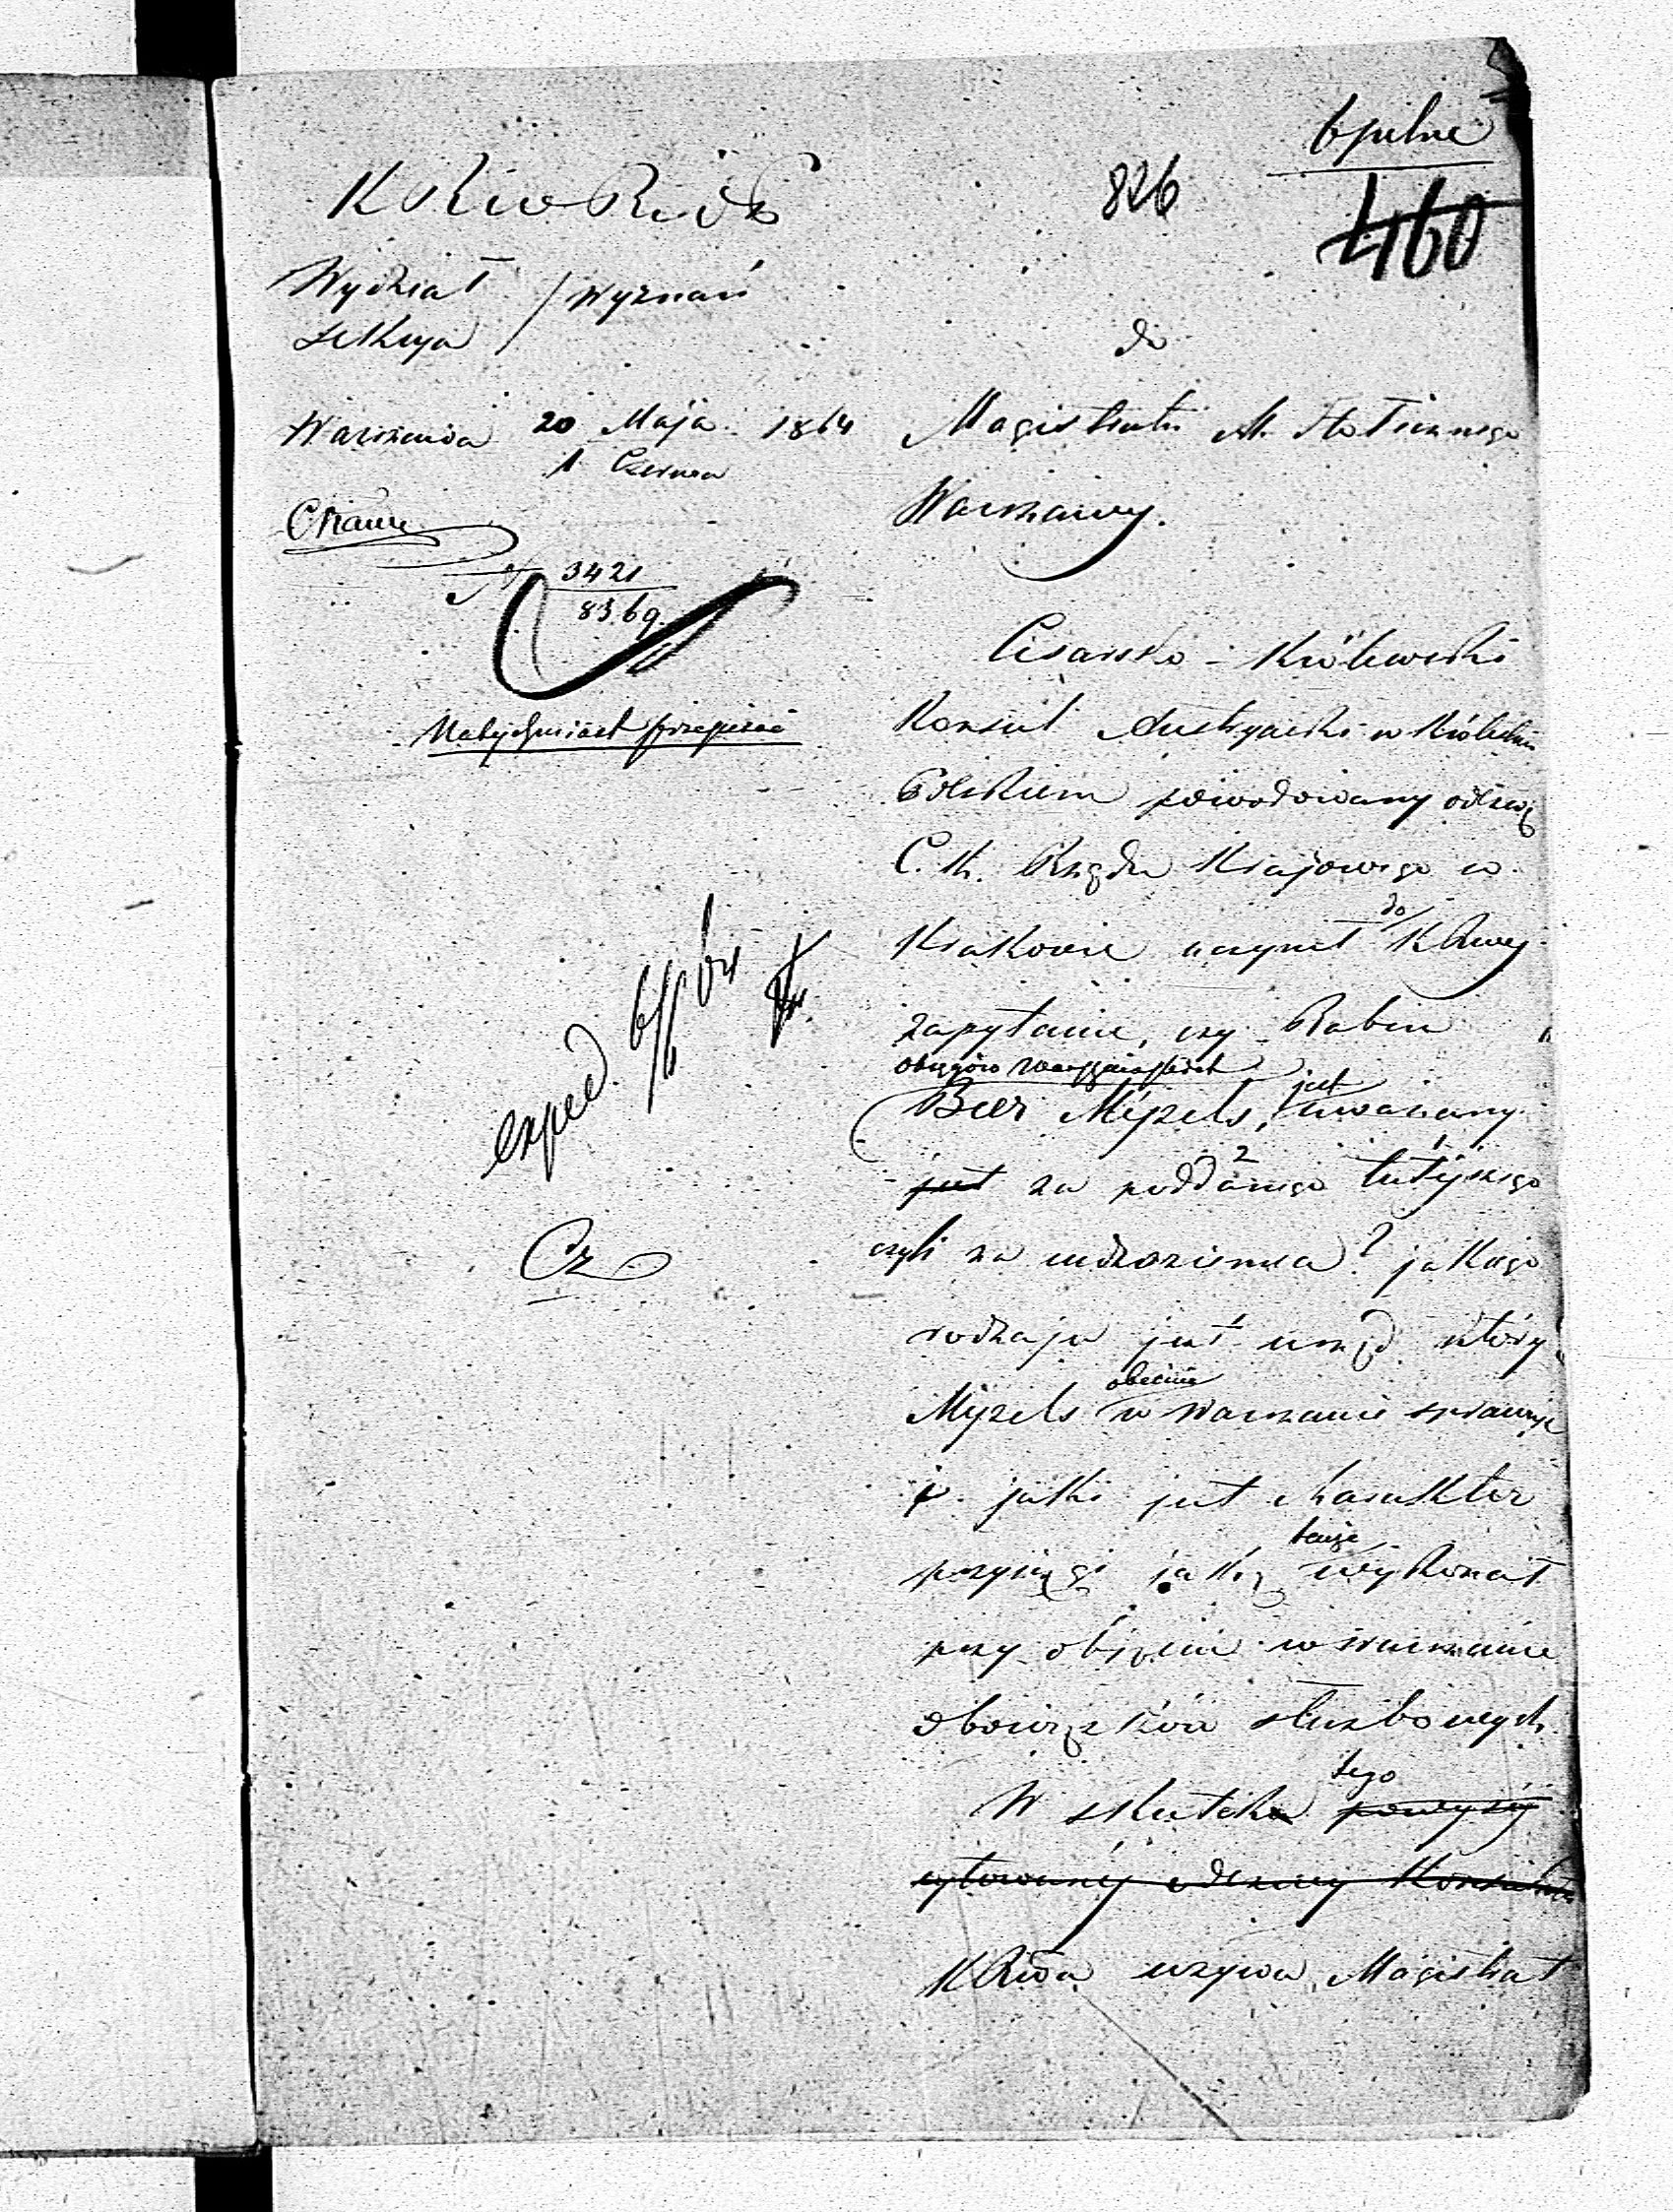 6 pilne
826
460
Wydział / Wyznań
Sekcya
Warszawa 20 Maja 1864
1 Czerwca
№ 3421
8369
Natychmiast przepisać
exped. 6/6 64
Cz
do
Magistratu M. Stołecznego
Warszawy.
Cesarsko-Królewski
Konsul Austryacki w Królestwie
Polskiem powodowany odezwą
C. K. Rządu Krajowego w
Krakowie uczynił do
zapytanie, czy Rabin
okręgów Warszawskich
Beer Mejzels, jest uważany
jest za poddanego tutejszego
czyli za cudzoziemca? jakiego
rodzaju jest urząd który
Mejzels obecnie w Warszawie sprawuje
i jaki jest charakter
przysięgi jaką tenże wykonał
przy objęciu w Warszawie
obowiązków służbowych.
W skutek tego powyżej
cytowanej odezwy Konsula
wzywa Magistrat